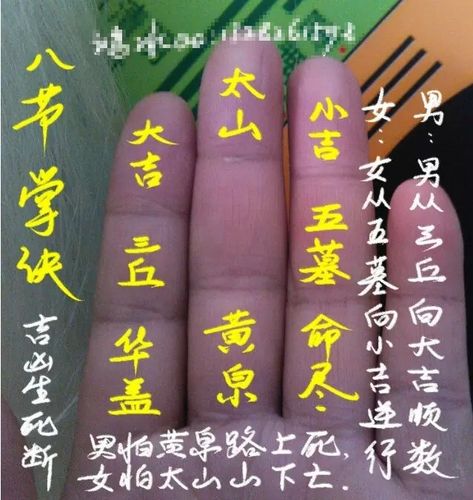 八节掌诀
吉凶生死断
大吉
三丘
华盖
太山
黄泉
小吉
五墓
命尽
男:男从三丘向大吉顺数
女:女从五墓向小吉逆行
男怕黄泉路上死,
女怕太山山下亡.